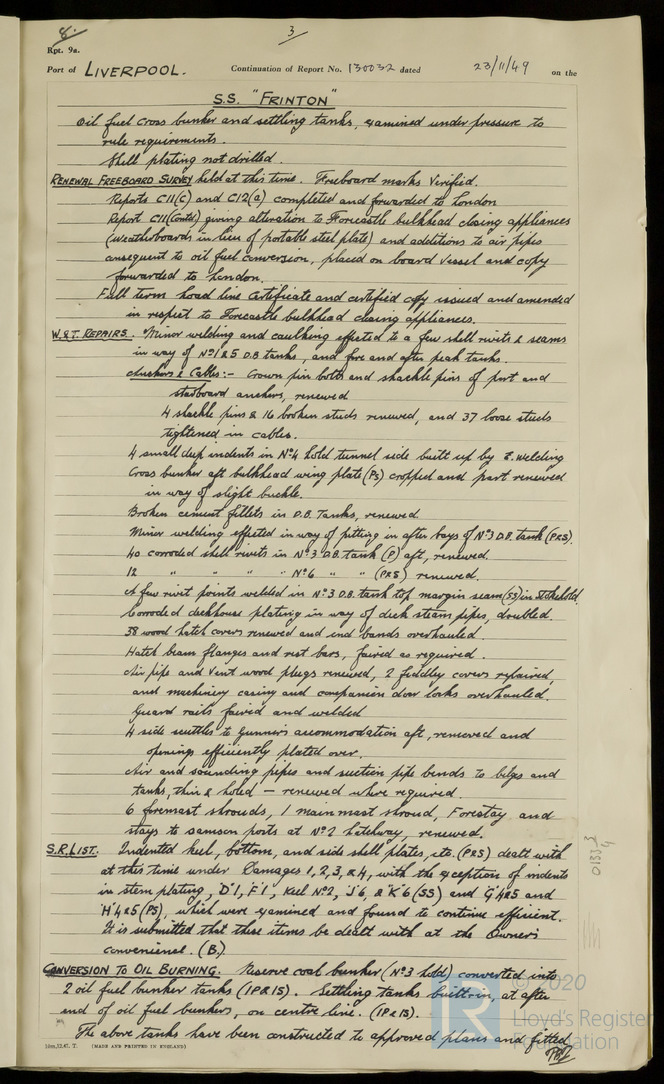 8.
3
Rpt. 9a.
Port of LIVERPOOL. Continuation of Report No. 130032 dated 23/11/49 on the
S.S. "FRINTON"
Oil fuel cross bunker and settling tanks, examined under pressure to
rule requirements.
Shell plating not drilled.
RENEWAL FREEBOARD SURVEY held at this time. Freeboard marks Verified.
Reports C11(c) and C12(a) completed and forwarded to London
Report C11(Contd) giving alteration to Forecastle bulkhead closing appliances
(weatherboards in lieu of portable steel plate) and additions to air pipes
consequent to oil fuel conversion, placed on board vessel and copy
forwarded to London.
Full term Load line Certificate and certified copy issued and amended
in respect to Forecastle bulkhead closing appliances.
W.&T. REPAIRS. Minor welding and caulking effected to a few shell rivets & seams
in way of Nº1&5 D.B tanks, and fore and after peak tanks.
Anchors & Cables:- Crown pin bolts and shackle pins of port and
starboard anchors, renewed
4 shackle pins & 16 broken studs renewed, and 37 loose studs
tightened in cables.
4 small deep indents in Nº4 hold tunnel side built up by E. Welding
Cross bunker aft bulkhead wing plate (PS) cropped and part renewed
in way of slight buckle.
Broken cement fillets in D.B. Tanks, renewed
Minor welding effected in way of pitting in after bays of Nº3 D.B. tank (P&S).
40 corroded shell rivets in Nº3 D.B. tank (P) aft, renewed.
12 " " " " Nº6 " " (P&S) renewed.
A few rivet points welded in Nº3 D.B. tank top margin seam (SS) in Stokehold.
Corroded deckhouse plating in way of deck steam pipes, doubled.
38 wood hatch covers renewed and end bands overhauled.
Hatch beam flanges and rest bars, faired as required.
Air pipe and vent wood plugs renewed, 2 fiddley covers repaired,
and machinery casing and companion door locks overhauled.
Guard rails faired and welded
4 side scuttles to Gunners accommodation aft, removed and
openings efficiently plated over.
Air and sounding pipes and suction pipe bends to bilges and
tanks, thin & holed – renewed where required.
6 foremast shrouds, 1 mainmast shroud, Forestay and
stays to samson posts at Nº2 hatchway, renewed.
S.R.LIST. Indented keel, bottom, and side shell plates, etc. (P&S) dealt with
at this time under Damages 1, 2, 3, & 4, with the exception of indents
in stem plating, 'D'1, F'1, Keel Nº2, 'J'6, & 'K'6 (SS) and 'G'4&5 and
'H'4&5 (PS), which were examined and found to continue efficient.
It is submitted that these items be dealt with at the Owners
convenience. (B.)
CONVERSION TO OIL BURNING. Reserve coal bunker (Nº3 hold) converted into
2 oil fuel bunker tanks (1P&1S). Settling tanks built in, at after
end of oil fuel bunkers, on centre line. (1P&1S).
The above tanks have been constructed to approved plans and fitted
10m,12,47. T. (MADE AND PRINTED IN ENGLAND)
© 2020
Lloyd's Register
Foundation